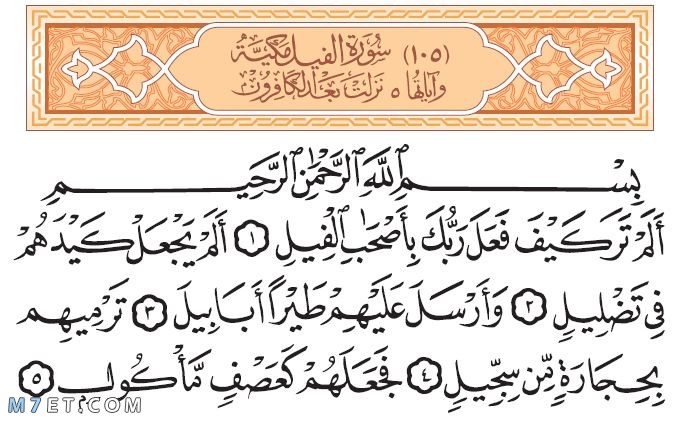 (١٠٥) سُورَةُ الْفِيلِ مَكِّيَّةٌ
وَآيَاتُهَا ٥ نَزَلَتْ بَعْدَ الْكَافِرُونَ
بِسْمِ ٱللَّهِ ٱلرَّحْمَٰنِ ٱلرَّحِيمِ
أَلَمْ تَرَ كَيْفَ فَعَلَ رَبُّكَ بِأَصْحَٰبِ ٱلْفِيلِ ١ أَلَمْ يَجْعَلْ كَيْدَهُمْ
فِي تَضْلِيلٍ ٢ وَأَرْسَلَ عَلَيْهِمْ طَيْرًا أَبَابِيلَ ٣ تَرْمِيهِم
بِحِجَارَةٍ مِّن سِجِّيلٍ ٤ فَجَعَلَهُمْ كَعَصْفٍ مَّأْكُولٍۭ ٥
M7ET.COM